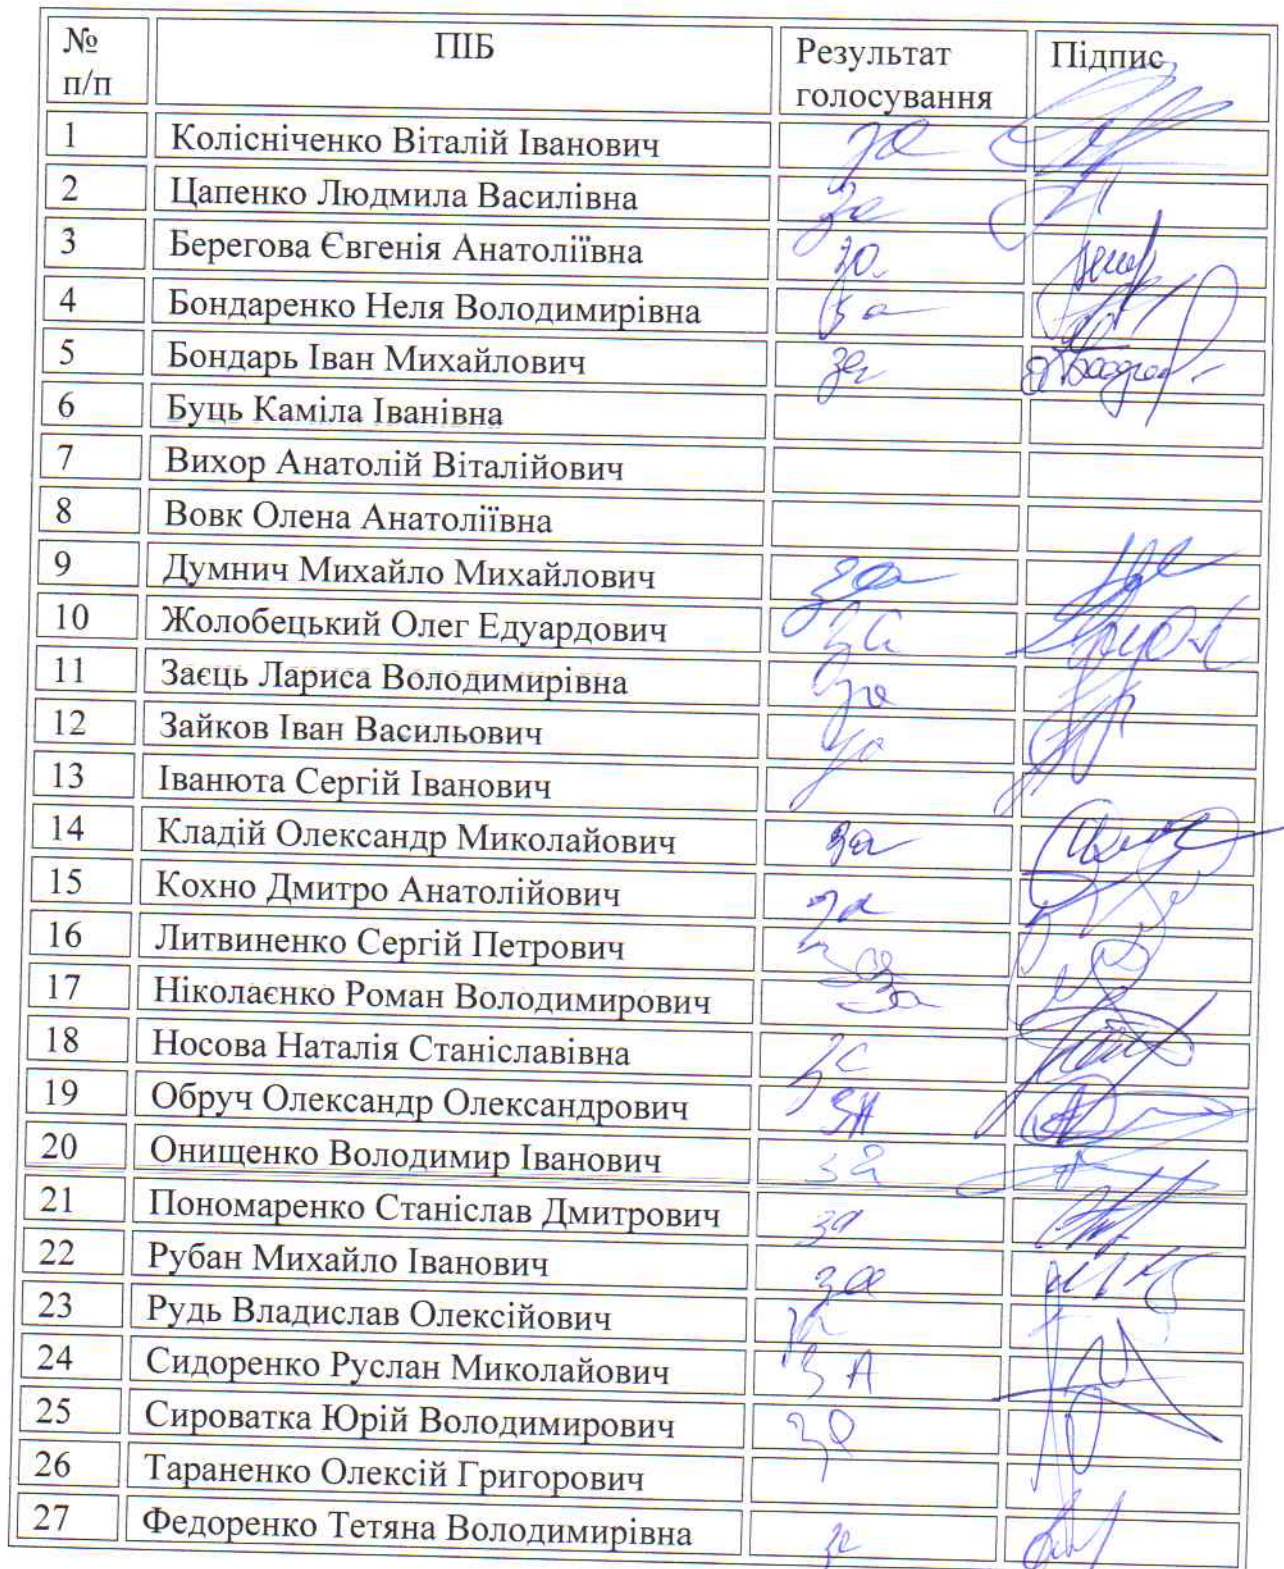 № п/п ПІБ Результат голосування Підпис
1 Колісніченко Віталій Іванович за
2 Цапенко Людмила Василівна за
3 Берегова Євгенія Анатоліївна за
4 Бондаренко Неля Володимирівна за
5 Бондарь Іван Михайлович за
6 Буць Каміла Іванівна
7 Вихор Анатолій Віталійович
8 Вовк Олена Анатоліївна
9 Думнич Михайло Михайлович за
10 Жолобецький Олег Едуардович за
11 Заєць Лариса Володимирівна за
12 Зайков Іван Васильович за
13 Іванюта Сергій Іванович
14 Кладій Олександр Миколайович за
15 Кохно Дмитро Анатолійович за
16 Литвиненко Сергій Петрович за
17 Ніколаєнко Роман Володимирович за
18 Носова Наталія Станіславівна за
19 Обруч Олександр Олександрович за
20 Онищенко Володимир Іванович за
21 Пономаренко Станіслав Дмитрович за
22 Рубан Михайло Іванович за
23 Рудь Владислав Олексійович за
24 Сидоренко Руслан Миколайович ЗА
25 Сироватка Юрій Володимирович за
26 Тараненко Олексій Григорович
27 Федоренко Тетяна Володимирівна за